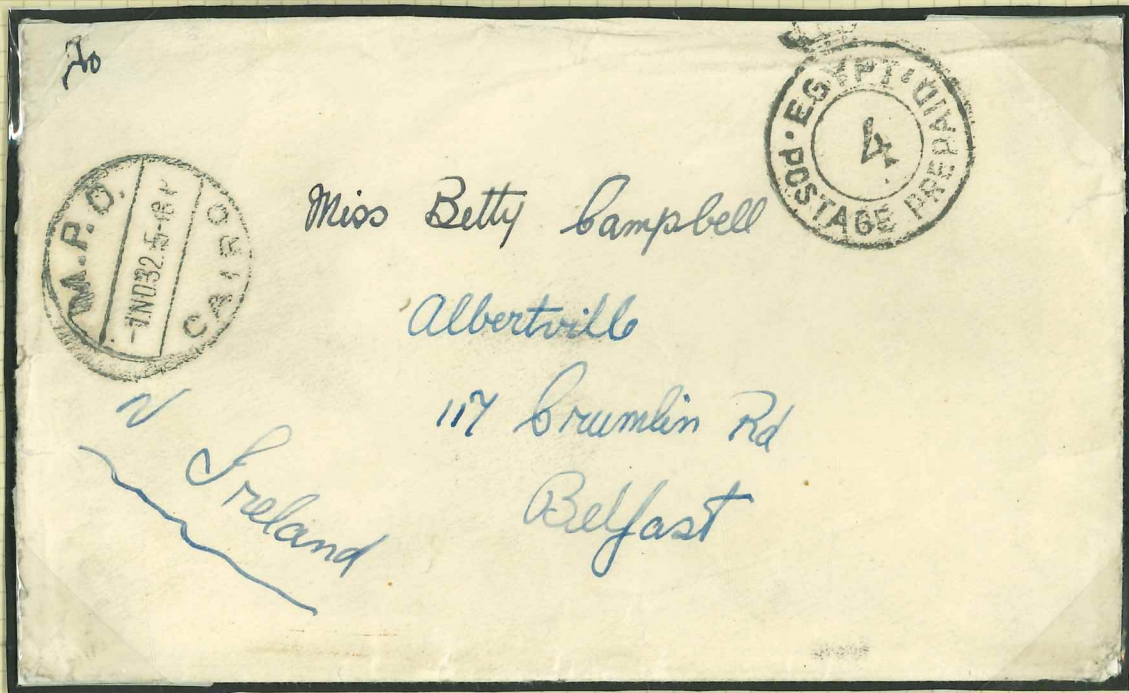 To
EGYPT. POSTAGE PREPAID.
4
M.P.O.
CAIRO
Miss Betty Campbell
Albertville
117 Crumlin Rd
Belfast
N Ireland